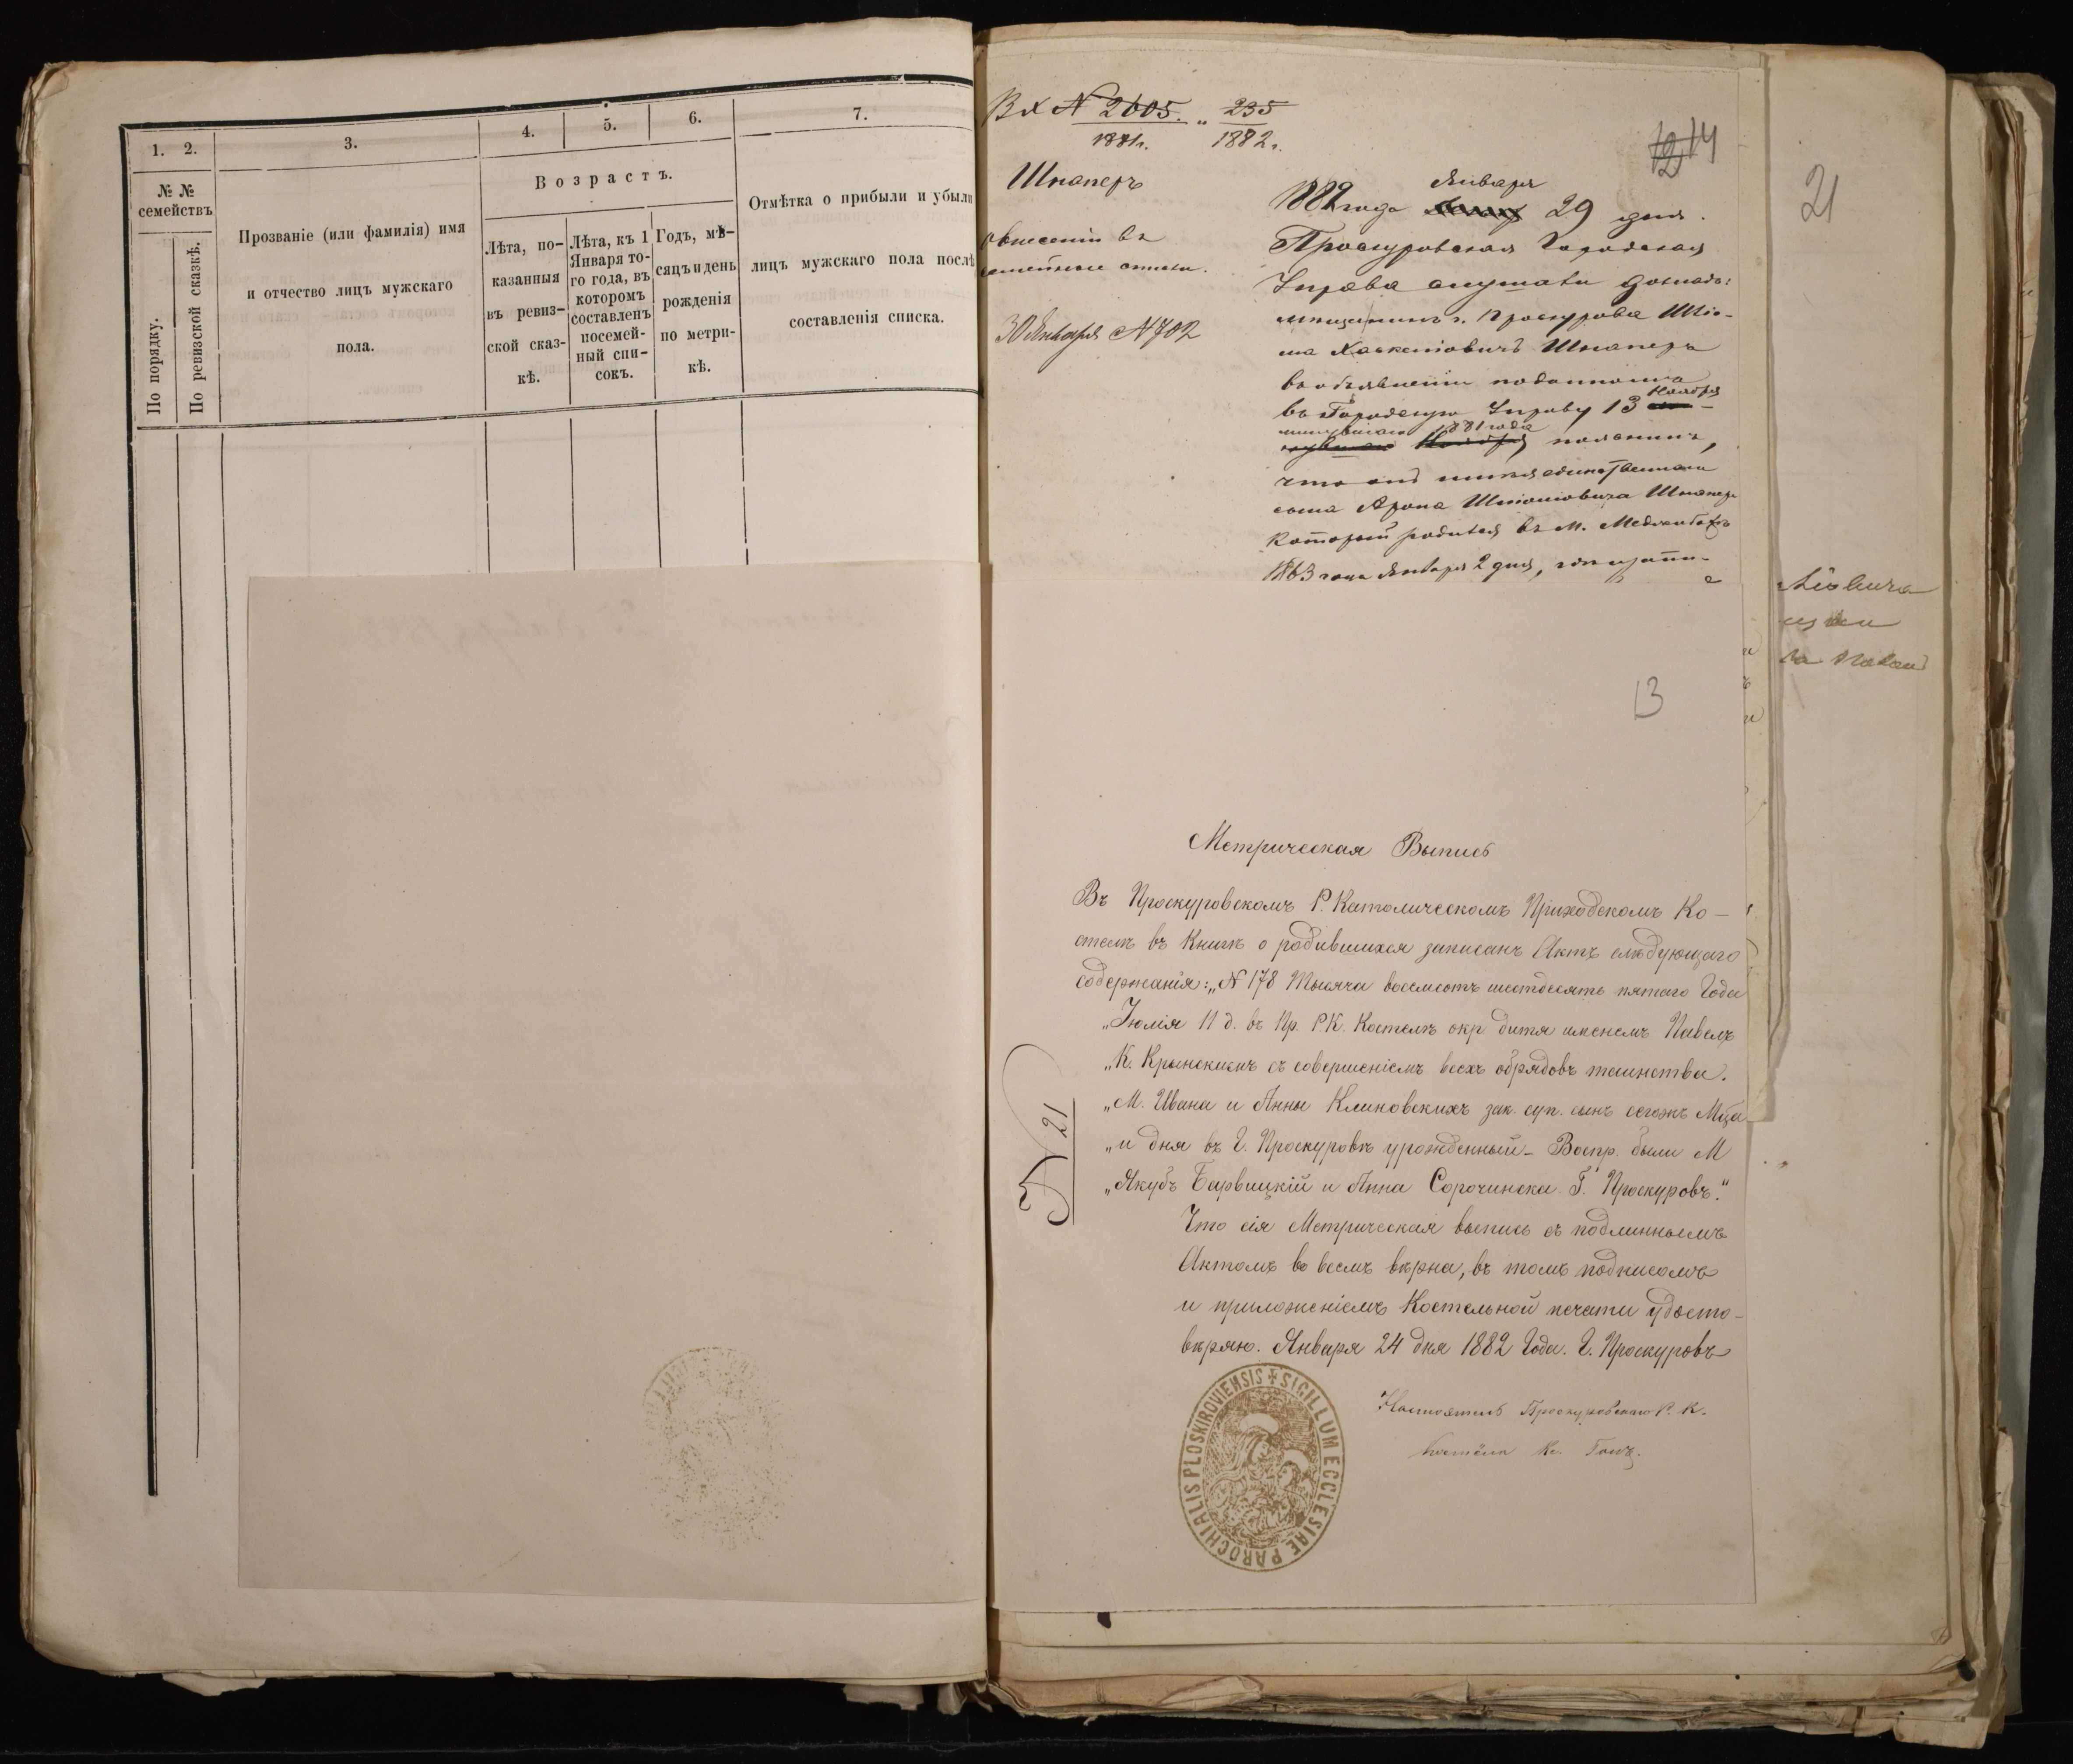 1. 2. 3. 4. 5. 6. 7.
№ №
семействъ
По порядку.
По ревизской сказкѣ.
Прозваніе (или фамилія) имя
и отчество лицъ мужскаго
пола.
Возрастъ.
Лѣта, по-
казанныя
въ ревиз-
ской сказ-
кѣ.
Лѣта, къ 1
Января то-
го года, въ
которомъ
составленъ
посемей-
ный спи-
сокъ.
Годъ, мѣ-
сяцъ и день
рожденія
по метри-
кѣ.
Отмѣтка о прибыли и убыли
лицъ мужскаго пола послѣ
составленія списка.
Вх № 2605. „ 235
1881г. 1882г.
Шнаперъ
внесеніи въ
30 Января № 702
14
21
Января
1882 года 29 дня.
Проскуровская Городская
Управа слушали докладъ:
мещанинъ г. Проскурова Шло-
ма Хаскелiовичъ Шнаперъ
въ объявленіи поданномъ
Ноября
въ Городскую Управу 13
минувшаго 1881 года
пояснилъ,
что онъ имѣя единственнаго
сына Арона Шліомовича Шнапера
который родился въ м. Меджибожъ
1863 года Января 2 дня,
13
Метрическая Выпись
Въ Проскуровскомъ Р. Католическомъ Приходскомъ Ко-
стелѣ въ Книгѣ о родившихся записанъ Актъ слѣдующаго
содержанія: „№ 178 Тысяча восемсотъ шестдесятъ пятаго Года
„Іюлія 11 д. въ Пр. Р.К. Костелѣ окр дитя именемъ Павелъ
„К. Крынскимъ съ совершеніемъ всехъ обрядовъ таинства.
„М. Ивана и Анны Климовскихъ зак. суп. сынъ сегожъ Мца
„и дня въ Г. Проскуровѣ урожденный – Воспр. были М
„Якубъ Барвицкій и Анна Сорочинска. Г. Проскуровъ.“
Что сія Метрическая выпись съ подлиннымъ
Актомъ во всемъ вѣрна, въ томъ подписомъ
и приложеніемъ Костельной печати удосто-
вѣряю. Января 24 дня 1882 Года. Г. Проскуровъ
№ 21
Настоятель Проскуровскаго Р. К.
Костёла Кс.
SIGILLUM ECCLESIAE PAROCHIALIS PLOSKIROVIENSIS